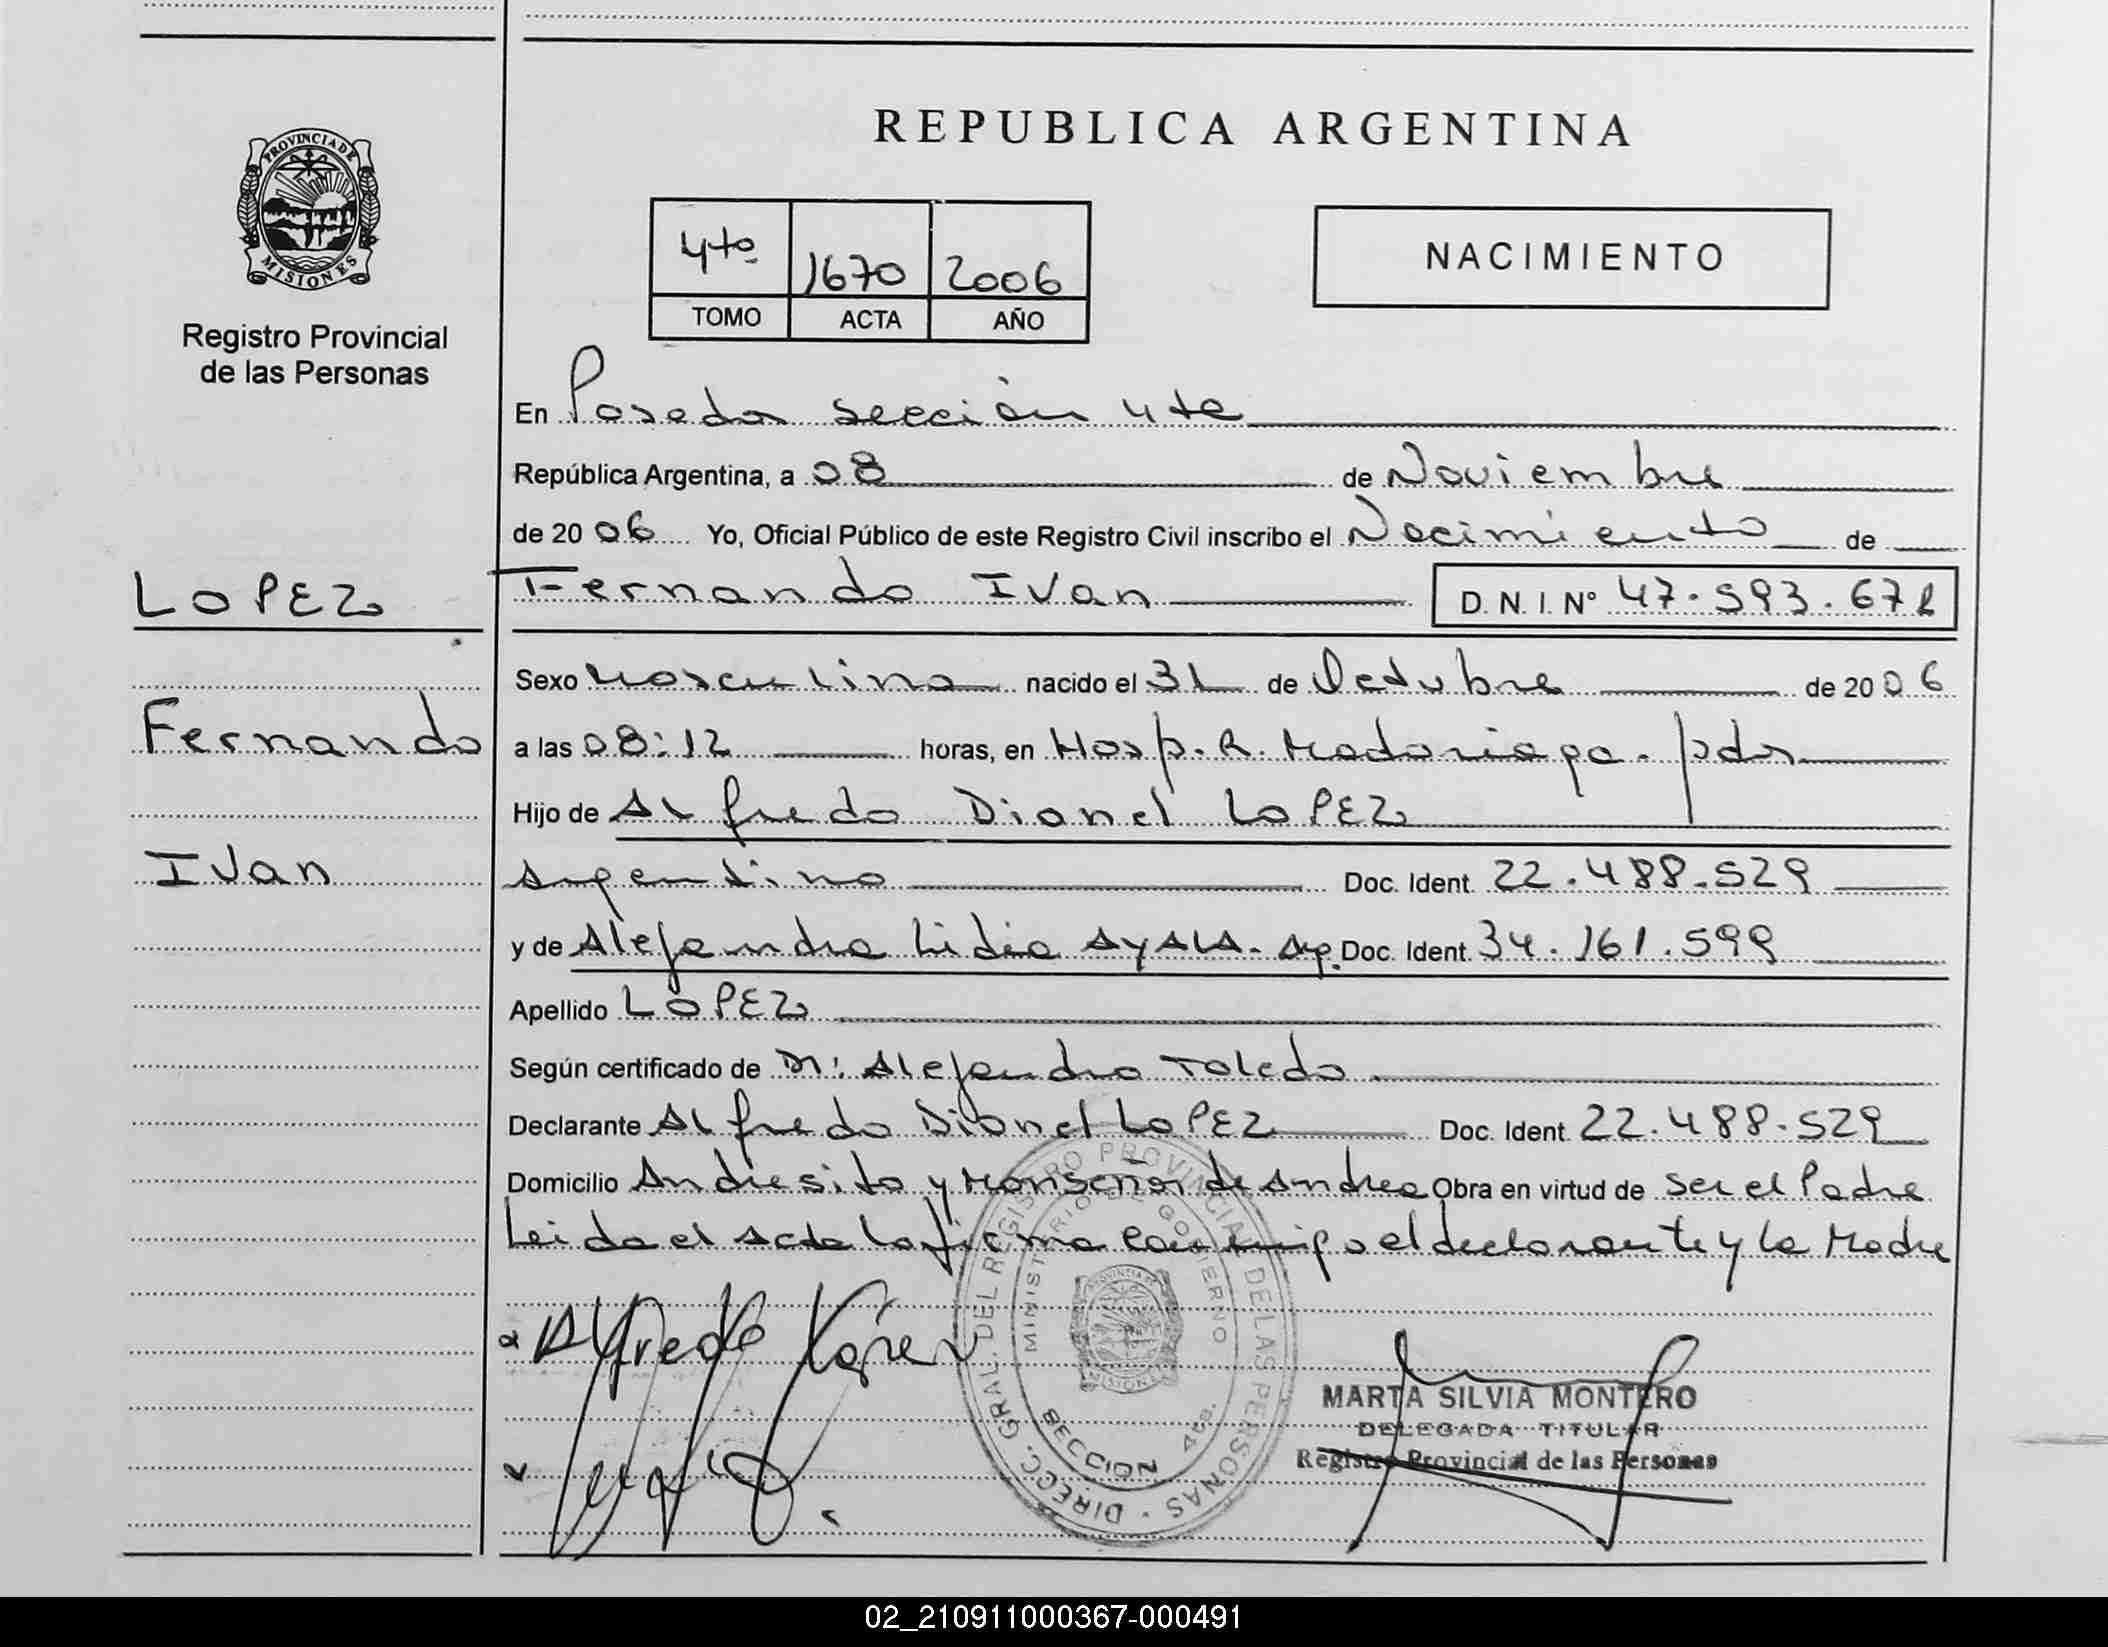 REPUBLICA ARGENTINA
PROVINCIA DE MISIONES
Registro Provincial
de las Personas
4to 1670 2006
TOMO ACTA AÑO
NACIMIENTO
En Posadas sección 4ta
República Argentina, a 08 de Noviembre
de 2006 Yo, Oficial Público de este Registro Civil inscribo el Nacimiento de
LOPEZ
Fernando
Ivan
Fernando Ivan D.N.I. Nº 47.593.671
Sexo Masculino nacido el 31 de Octubre de 2006
a las 08:12 horas, en Hosp. R. Madariaga. Pdas
Hijo de Alfredo Dionel LOPEZ
Argentino Doc. Ident. 22.488.529
y de Alejandra Lidia AYALA. Arg. Doc. Ident. 34.161.599
Apellido LOPEZ
Según certificado de Dr. Alejandro Toledo
Declarante Alfredo Dionel LOPEZ Doc. Ident. 22.488.529
Domicilio Andresito y Monseñor de Andrea Obra en virtud de ser el Padre
Leida el acta la firma conmigo el declarante y la Madre
Alfredo López
DIRECC. GRAL. DEL REGISTRO PROVINCIAL DE LAS PERSONAS
MINISTERIO DE GOBIERNO
PROVINCIA DE MISIONES
SECCION 4ta.
MARTA SILVIA MONTERO
DELEGADA TITULAR
Registro Provincial de las Personas
02_210911000367-000491